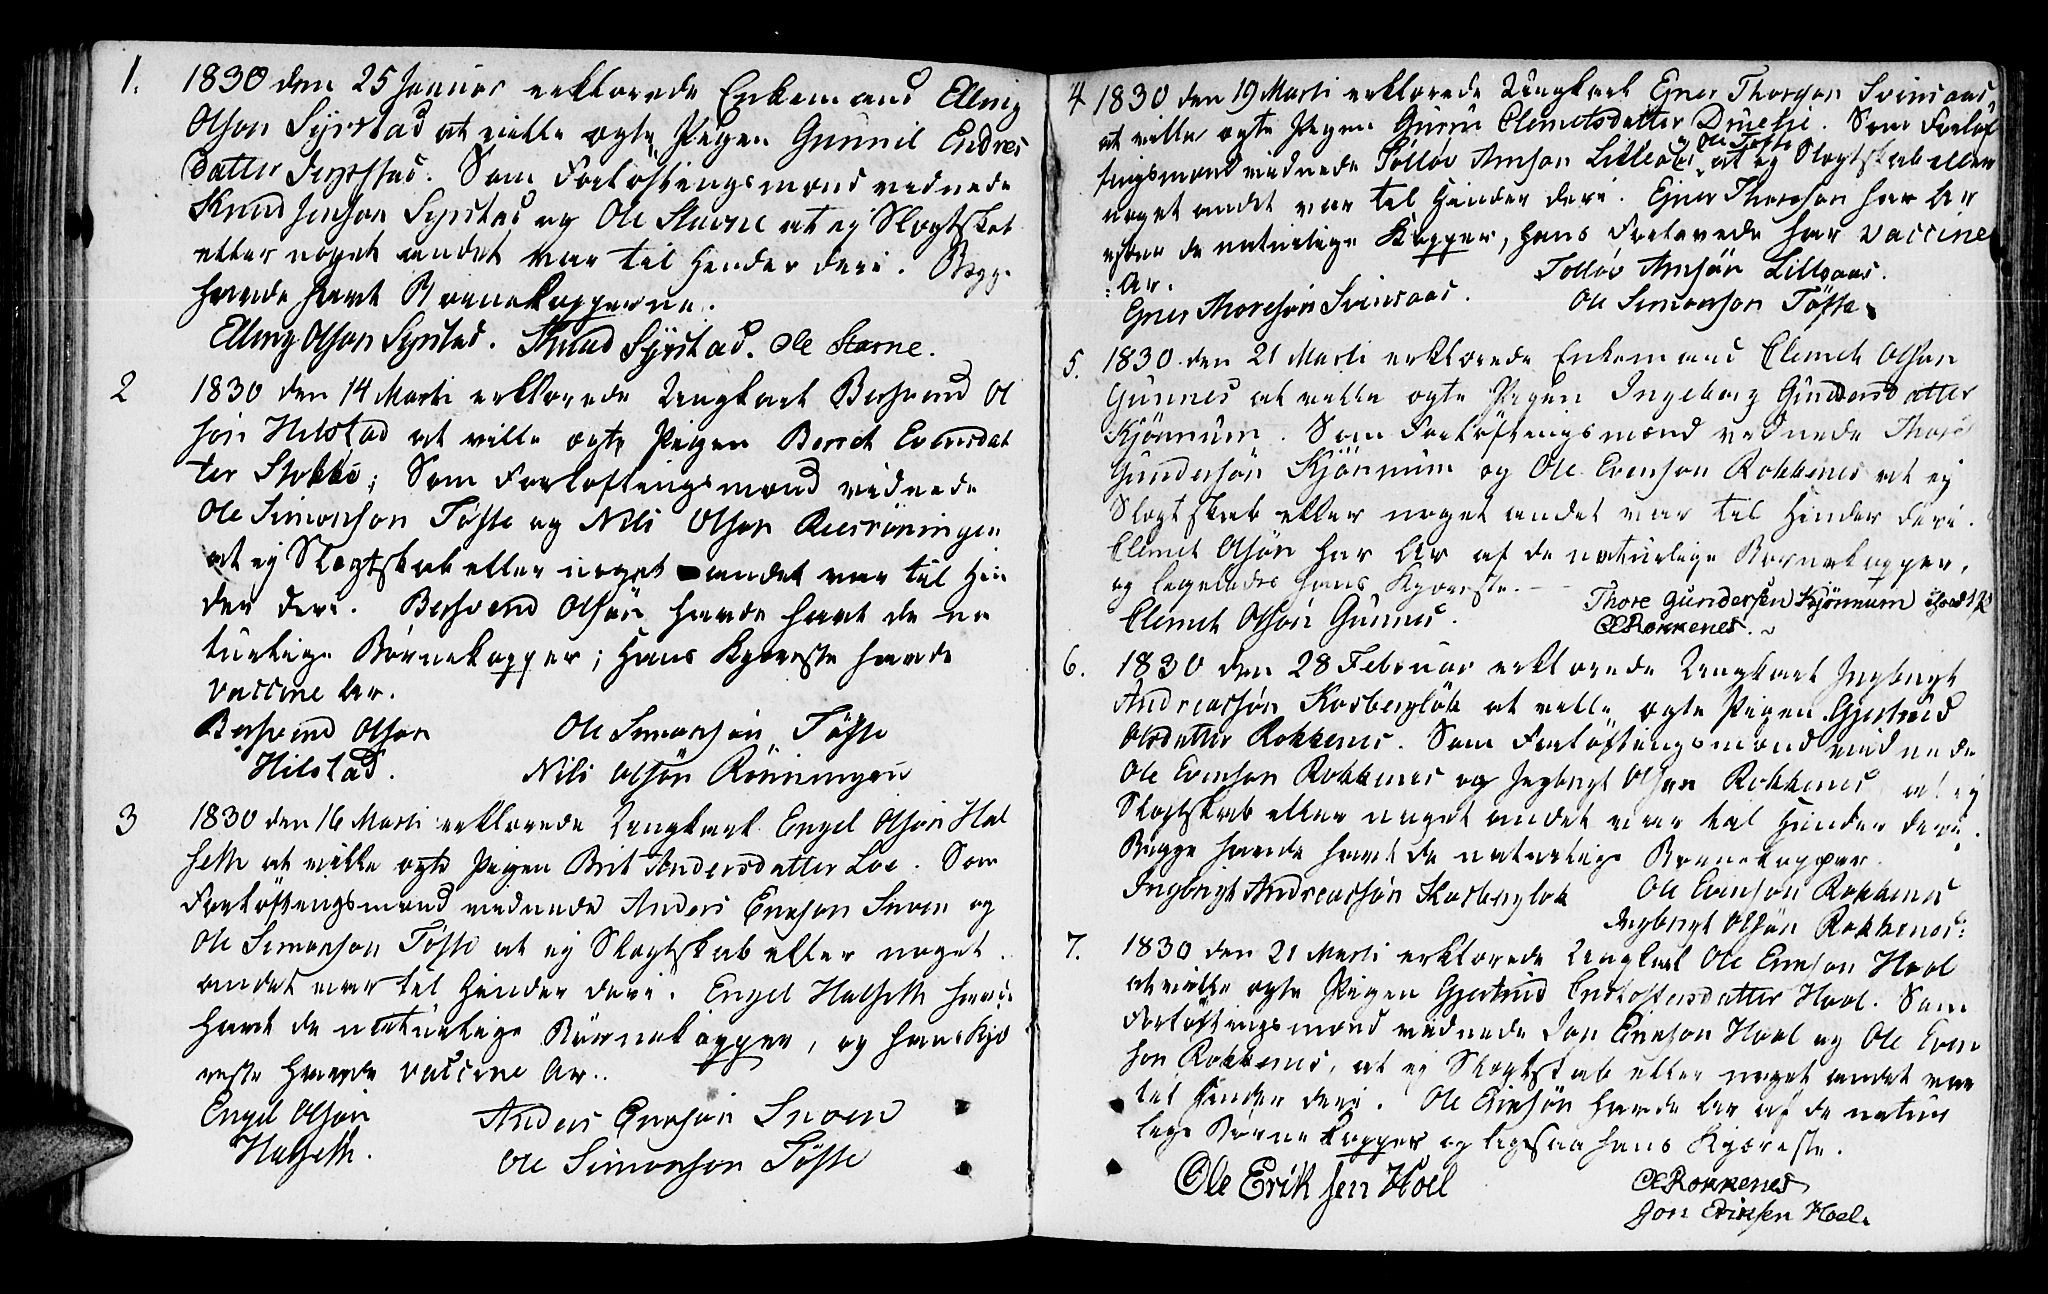 1. 1830 den 25 Januar erklærede Enkemand Elling
Olson Syrstad at ville ægte Pigen Gunnil Endres
datter Syrstad. Som Forløftingsmænd vidnede
Knud Jenson Syrstad og Ole Stavne at ej Slægtskab
eller noget andet var til Hinder deri. Begge
havde havt Børnekopperne.
Elling Olson Syrstad. Knud Syrstad. Ole Starne.
2 1830 den 14 Marti erklærede Ungkarl Berhvend Ol
søn Hilstad at ville ægte Pigen Beret Evensdat
ter Stokke; Som Forløftingsmænd vidnede
Ole Simonson Tøfte og Nils Olson Rønningen
at ej Slægtskab eller noget andet var til Hin
der deri. Berhvend Olsøn havde havt de na
turlige Børnekopper; Hans Kjæreste havde
vaccine Ar.
Berhvend Olson Ole Simonsøn Tøfte
Hilstad. Nils Olsøn Rønningen
3 1830 den 16 Marti erklærede Ungkarl Engel Olsøn Hal
seth at ville ægte Pigen Brit Andersdatter Loe. Som
Forløftingsmænd vidnede Anders Erikson Snoen og
Ole Simonson Tøfte at ej Slægtskab eller noget
andet var til Hinder deri. Engel Halseth havde
havt de naturlige Børnekopper, og hans Kjæ
reste havde vaccine Ar.
Engel Olsøn Anders Erikson Snoen
Halseth. Ole Simonson Tøfte
4 1830 den 19 Marti erklærede Ungkarl Ejner Thoreson Svinsaas
at ville ægte Pigen Guru Clemetsdatter Druglie. Som Forløf
og Ole Tøfte
tingsmænd vidnede Tolløv Arnson Lilleaas at ej Slægtskab eller
noget andet var til Hinder deri. Ejner Thoreson har Ar
efter de naturlige Kopper, hans Forlovede har vaccine
Ar. Tolløv Arnsøn Lilleaas.
Ejner Thoresøn Svinsaas. Ole Simonson Tøfte.
5. 1830 den 21 Marti erklærede Enkemand Clemet Olson
Gunnes at ville ægte Pigen Ingeborg Gundersdatter
Kjønnum. Som Forløftingsmænd vidnede Thore
Gundersøn Kjønnum og Ole Evenson Rokkenes at ej
Slægtskab eller noget andet var til Hinder deri.
Clemet Olsøn har Ar af de naturlige Børnekopper,
og ligeledes hans Kjæreste.
Thore Gundersen Kjønnum
Clemet Olsøn Gunnes. OERokkenes.
6. 1830 den 28 Februar erklærede Ungkarl Ingbrigt
Andreassøn Kosbergløk at ville ægte Pigen Gjertrud
Olsdatter Rokkenes. Som Forløftingsmænd vidnede
Ole Evenson Rokkenes og Ingbrigt Olsøn Rokkenes, at ej
Slægtskab eller noget andet var til Hinder deri.
Begge havde havt de naturlige Børnekopper.
Ingbrigt Andreassøn Kosbergløk Ole Evensøn Rokkenes
Ingbrigt Olsøn Rokkenes.
7. 1830 den 21 Marti erklærede Ungkarl Ole Erikson Hoel
at ville ægte Pigen Gjertrud Christofersdatter Hoel. Som
Forløftingsmænd vidnede Jon Erikson Hoel og Ole Even
son Rokkenes, at ej Slægtskab eller noget andet var
til Hinder deri. Ole Eriksøn havde Ar af de natur
lige Børnekopper og ligesaa hans Kjæreste.
Ole Eriksen Hoel OERokkenes
Jon Eriksen Hoel.